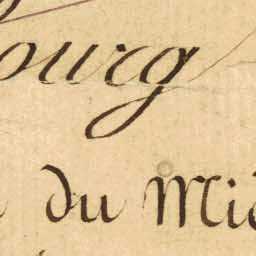 ourg
du Mié